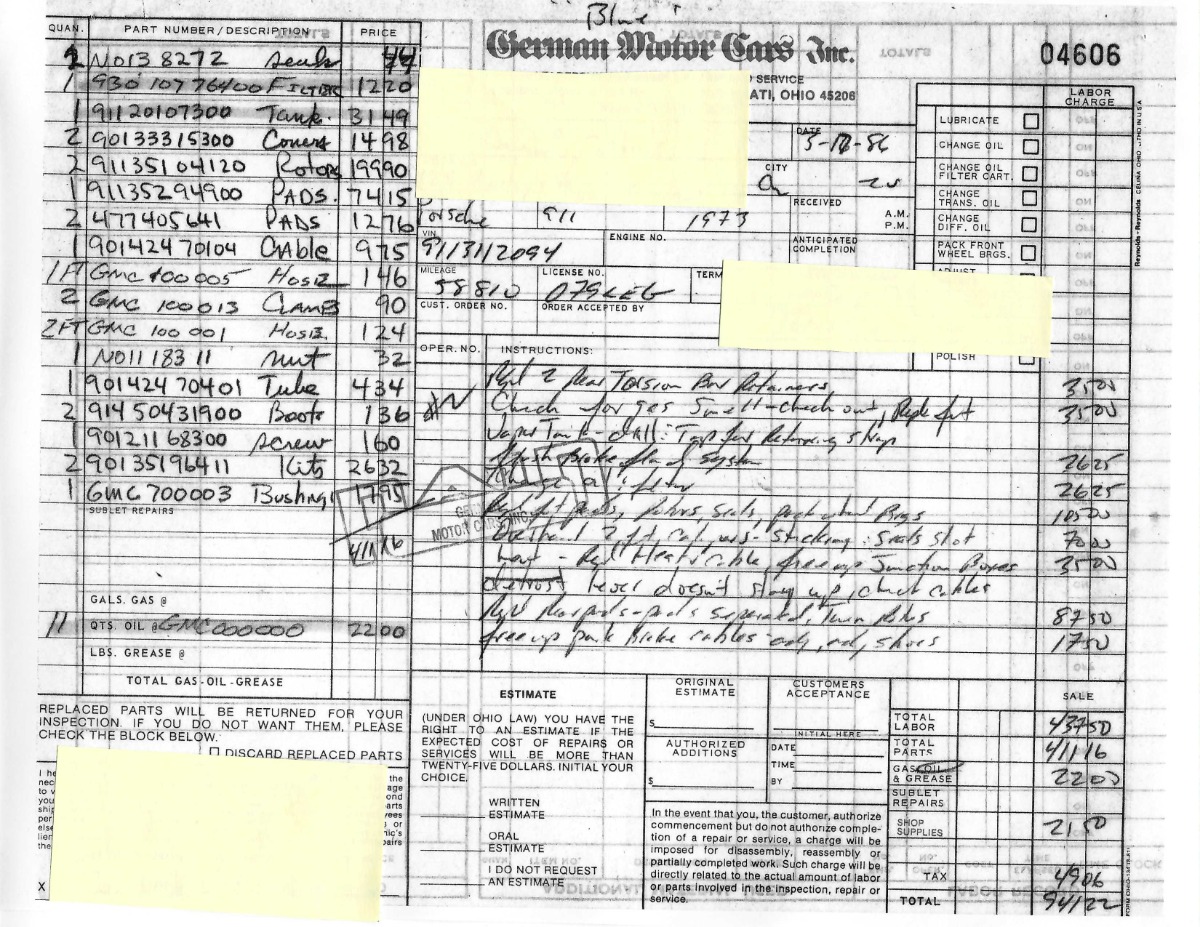 Blue
German Motor Cars Inc.
04606
SERVICE
ATI, OHIO 45206
QUAN. PART NUMBER / DESCRIPTION PRICE
N013 8272 Seals 44
1 930 107 764 00 FILTER 12 20
1 91120107300 Tank 31 49
2 90133315300 Covers 14 98
2 91135104120 Rotors 199 90
1 91135294900 PADS 74 15
2 477405641 PADS 12 76
1 90142470104 CAble 9 75
1FT GMC 100 005 Hose 1 46
2 GMC 100013 Clamps 90
2FT GMC 100 001 Hose 1 24
1 N011 183 11 nut 32
1 90142470401 Tube 4 34
2 91450431900 Boots 1 36
1 90121168300 Screw 1 60
2 90135196411 Kits 26 32
1 GMC 700003 Bushing 17 95
SUBLET REPAIRS
411 16
GALS. GAS @
11 QTS. OIL @ GMC000000 22 00
LBS. GREASE @
TOTAL GAS-OIL-GREASE
DATE
CITY
RECEIVED A.M. P.M.
Porsche 911 1973
VIN 9113112094
ENGINE NO.
ANTICIPATED COMPLETION
MILEAGE 58810
LICENSE NO. 079LEG
TERM
CUST. ORDER NO.
ORDER ACCEPTED BY
LABOR CHARGE
LUBRICATE
CHANGE OIL
CHANGE OIL FILTER CART.
CHANGE TRANS. OIL
CHANGE DIFF. OIL
PACK FRONT WHEEL BRGS.
ADJUST
POLISH
OPER. NO. INSTRUCTIONS:
Repl 2 Rear Torsion Bar Retainers 35 00
Check for gas smell - check out, Repl 35 00
Vapor Tank - drill: Tap for Retaining strap
flush Brake fluid System 26 25
Change oil, filter 26 25
pads, rotors, seals, pack wheel Brgs 105 00
Overhaul 2 ft. calipers - sticking: Seals shot 70 00
heat - Repl Heater cable, free up Junction Boxes 35 00
defrost lever doesn't stay up, check cables
Repl Rear pads - pads separated, Turn Rotors 87 50
free up park Brake cables - adj, adj, shoes 17 50
MOTOR CARS INC.
REPLACED PARTS WILL BE RETURNED FOR YOUR
INSPECTION. IF YOU DO NOT WANT THEM, PLEASE
CHECK THE BLOCK BELOW.
DISCARD REPLACED PARTS
X
ESTIMATE
(UNDER OHIO LAW) YOU HAVE THE
RIGHT TO AN ESTIMATE IF THE
EXPECTED COST OF REPAIRS OR
SERVICES WILL BE MORE THAN
TWENTY-FIVE DOLLARS. INITIAL YOUR
CHOICE.
WRITTEN ESTIMATE
ORAL ESTIMATE
I DO NOT REQUEST AN ESTIMATE
ORIGINAL ESTIMATE
$
AUTHORIZED ADDITIONS
$
CUSTOMERS ACCEPTANCE
INITIAL HERE
DATE
TIME
BY
In the event that you, the customer, authorize
commencement but do not authorize comple-
tion of a repair or service, a charge will be
imposed for disassembly, reassembly or
partially completed work. Such charge will be
directly related to the actual amount of labor
or parts involved in the inspection, repair or
service.
SALE
TOTAL LABOR 437 50
TOTAL PARTS 411 16
GAS OIL & GREASE 22 00
SUBLET REPAIRS
SHOP SUPPLIES 21 50
TAX 49 06
TOTAL 941 22